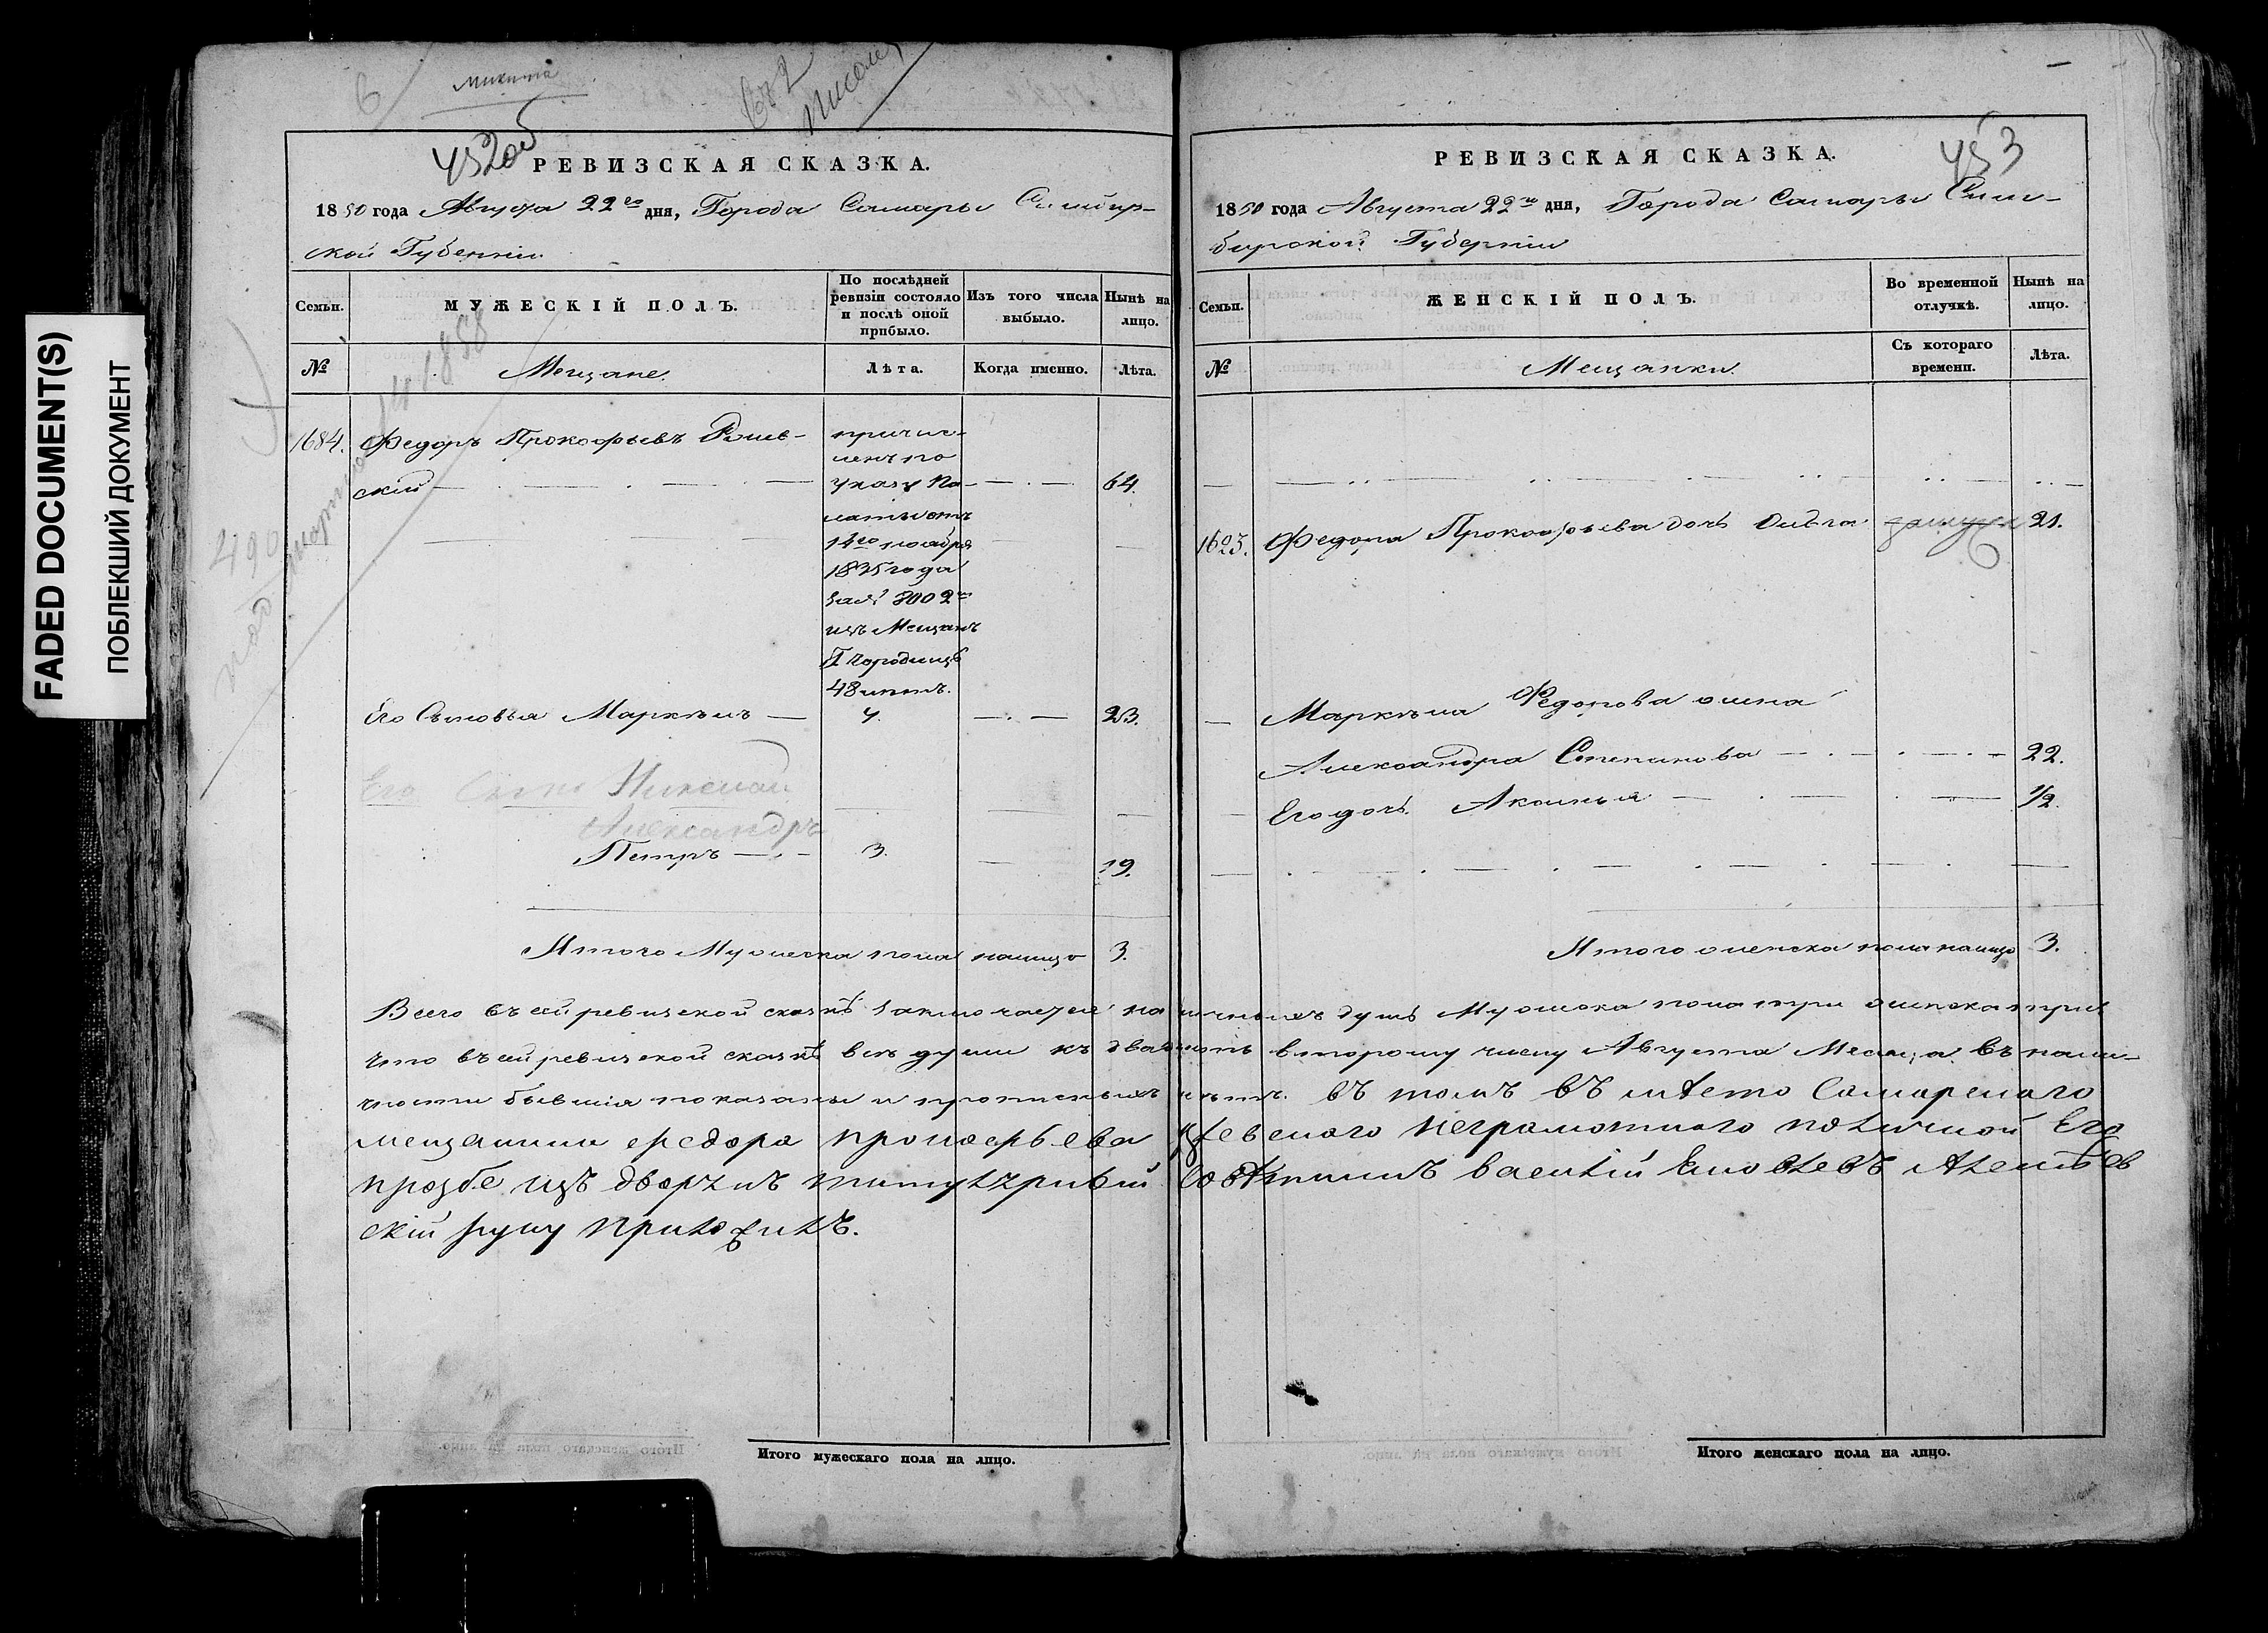 FADED DOCUMENT(S)
ПОБЛЕКШИЙ ДОКУМЕНТ
6
Микита
452об
РЕВИЗСКАЯ СКАЗКА.
1850 года Августа 22го дня, Города Самары Симбир-
ской Губерніи
Семьи.
МУЖЕСКІЙ ПОЛЪ.
По послѣдней ревизіи состояло и послѣ оной прибыло.
Изъ того числа выбыло.
Нынѣ на лицо.
№
Мещане.
Лѣта.
Когда именно.
Лѣта.
1858
490
1684. Федоръ Прокофьевъ
скій 64.
причис-
ленъ по
указу Па-
латы отъ
ноября
1835 года
за № 3002м
изъ Мещанъ
Г. Городищъ
48 лѣтъ.
Его Сыновья Маркелъ 4. 23.
Его Сынъ Николай
Александръ
Петръ 3. 19.
Итого Мужеска пола налицо 3.
453
РЕВИЗСКАЯ СКАЗКА.
1850 года Августа 22го дня, Города Самары Сим-
бирской Губерніи
Семьи.
ЖЕНСКІЙ ПОЛЪ.
Во временной отлучкѣ.
Нынѣ на лицо.
№
Мещанки.
Съ котораго времени.
Лѣта.
1623. Федора Прокофьева дочь Ольга 21.
Маркела Федорова жена
Александра Степанова 22.
Его дочь Аксинья 1/2.
Итого женска пола налицо 3.
Всего въ сей ревизской сказкѣ заключается наличныхъ душъ Мужеска пола три женска три
Что въ сей ревизской сказкѣ все души къ двадцать второму числу Августа Месяца въ налич-
ности бывшія показаны и прописныхъ нѣтъ. въ томъ въ мѣсто Самарскаго
мещанина федора прокофьева неграмотнаго по личной Его
прозбе изъ дворянъ титулярный Совѣтникъ василій
скій руку приложилъ.
Итого мужескаго пола на лицо.
Итого женскаго пола на лицо.